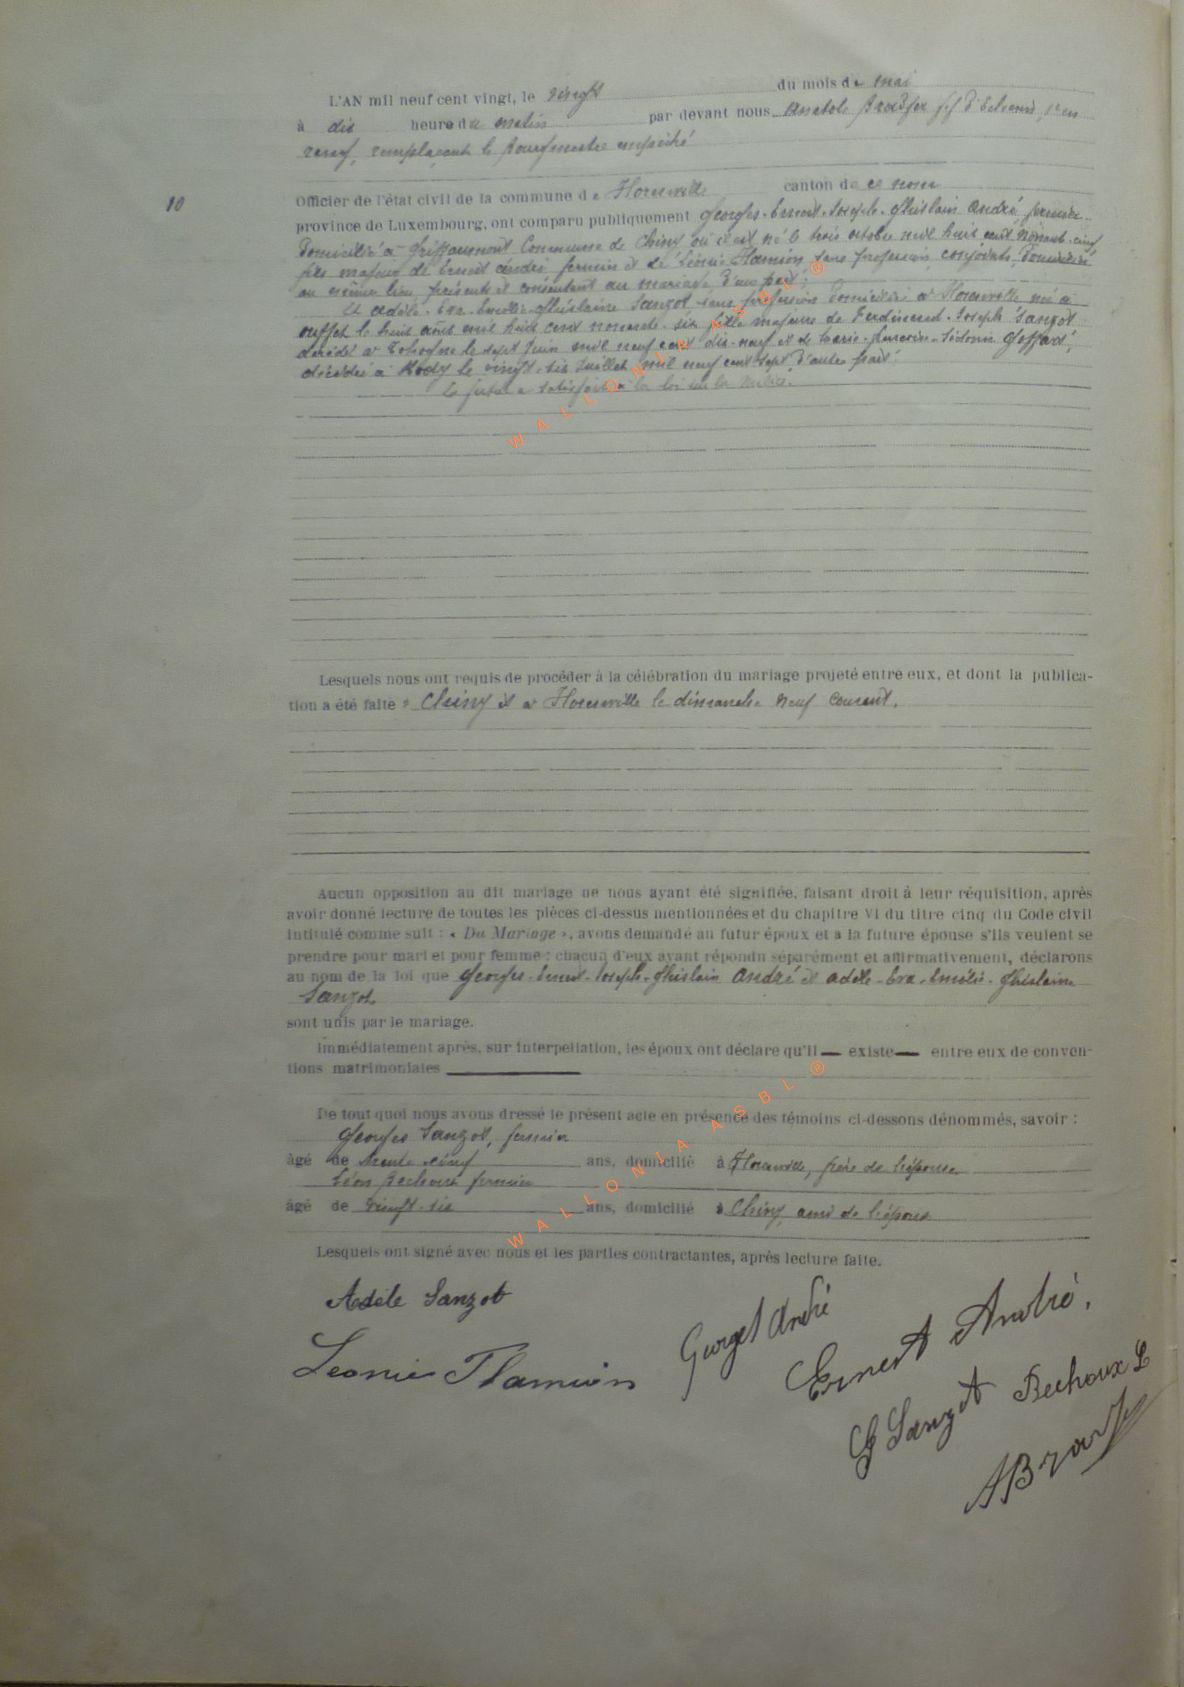 du mois de mai
L'AN mil neuf cent vingt, le vingt
à dix heure du matin par devant nous Anatole ff d'Echevin,
remplaçant le Bourgmestre empêché
10
Officier de l'état civil de la commune de Florenville canton de ce nom
province de Luxembourg, ont comparu publiquement Georges-Ernest-Joseph-Ghislain André fermier
domicilié à Commune de Chiny où il est né le trois octobre mil huit cent nonante-cinq
fils majeur de Ernest André fermier et de Léonie Flamion sans profession, conjoints, domiciliés
au même lieu, présents et consentant au mariage, d'une part;
Et Adèle-Eva-Emélie-Ghislaine Sanzot sans profession domiciliée à Florenville née à
Ouffet le huit août mil huit cent nonante-six fille majeure de Ferdinand-Joseph Sanzot
décédé à le sept Juin mil neuf cent dix-neuf et de Marie- Goffart,
décédée à Mody le vingt-six Juillet mil neuf cent sept d'autre part.
Le futur a satisfait à la loi sur la milice.
Lesquels nous ont requis de procéder à la célébration du mariage projeté entre eux, et dont la publica-
tion a été faite à Chiny et à Florenville le dimanche neuf courant.
Aucun opposition au dit mariage ne nous ayant été signifiée, faisant droit à leur réquisition, après
avoir donné lecture de toutes les pièces ci-dessus mentionnées et du chapitre VI du titre cinq du Code civil
intitulé comme suit : « Du Mariage », avons demandé au futur époux et à la future épouse s'ils veulent se
prendre pour mari et pour femme : chacun d'eux ayant répondu séparément et affirmativement, déclarons
au nom de la loi que Georges-Ernest-Joseph-Ghislain André et Adèle-Eva-Emélie-Ghislaine
Sanzot
sont unis par le mariage.
Immédiatement après, sur interpellation, les époux ont déclaré qu'il — existe — entre eux de conven-
tions matrimoniales
De tout quoi nous avons dressé le présent acte en présence des témoins ci-dessons dénommés, savoir :
Georges Sanzot, fermier
âgé de ans, domicilié à Florenville, frère de l'épouse
Léon Bechoux fermier
âgé de vingt-six ans, domicilié à Chiny, ami de l'époux
Lesquels ont signé avec nous et les parties contractantes, après lecture faite.
Adèle Sanzot
Georges André
Ernest André.
Leonie Flamion
G Sanzot Bechoux L
WALLONIA ASBL ®
WALLONIA ASBL ®